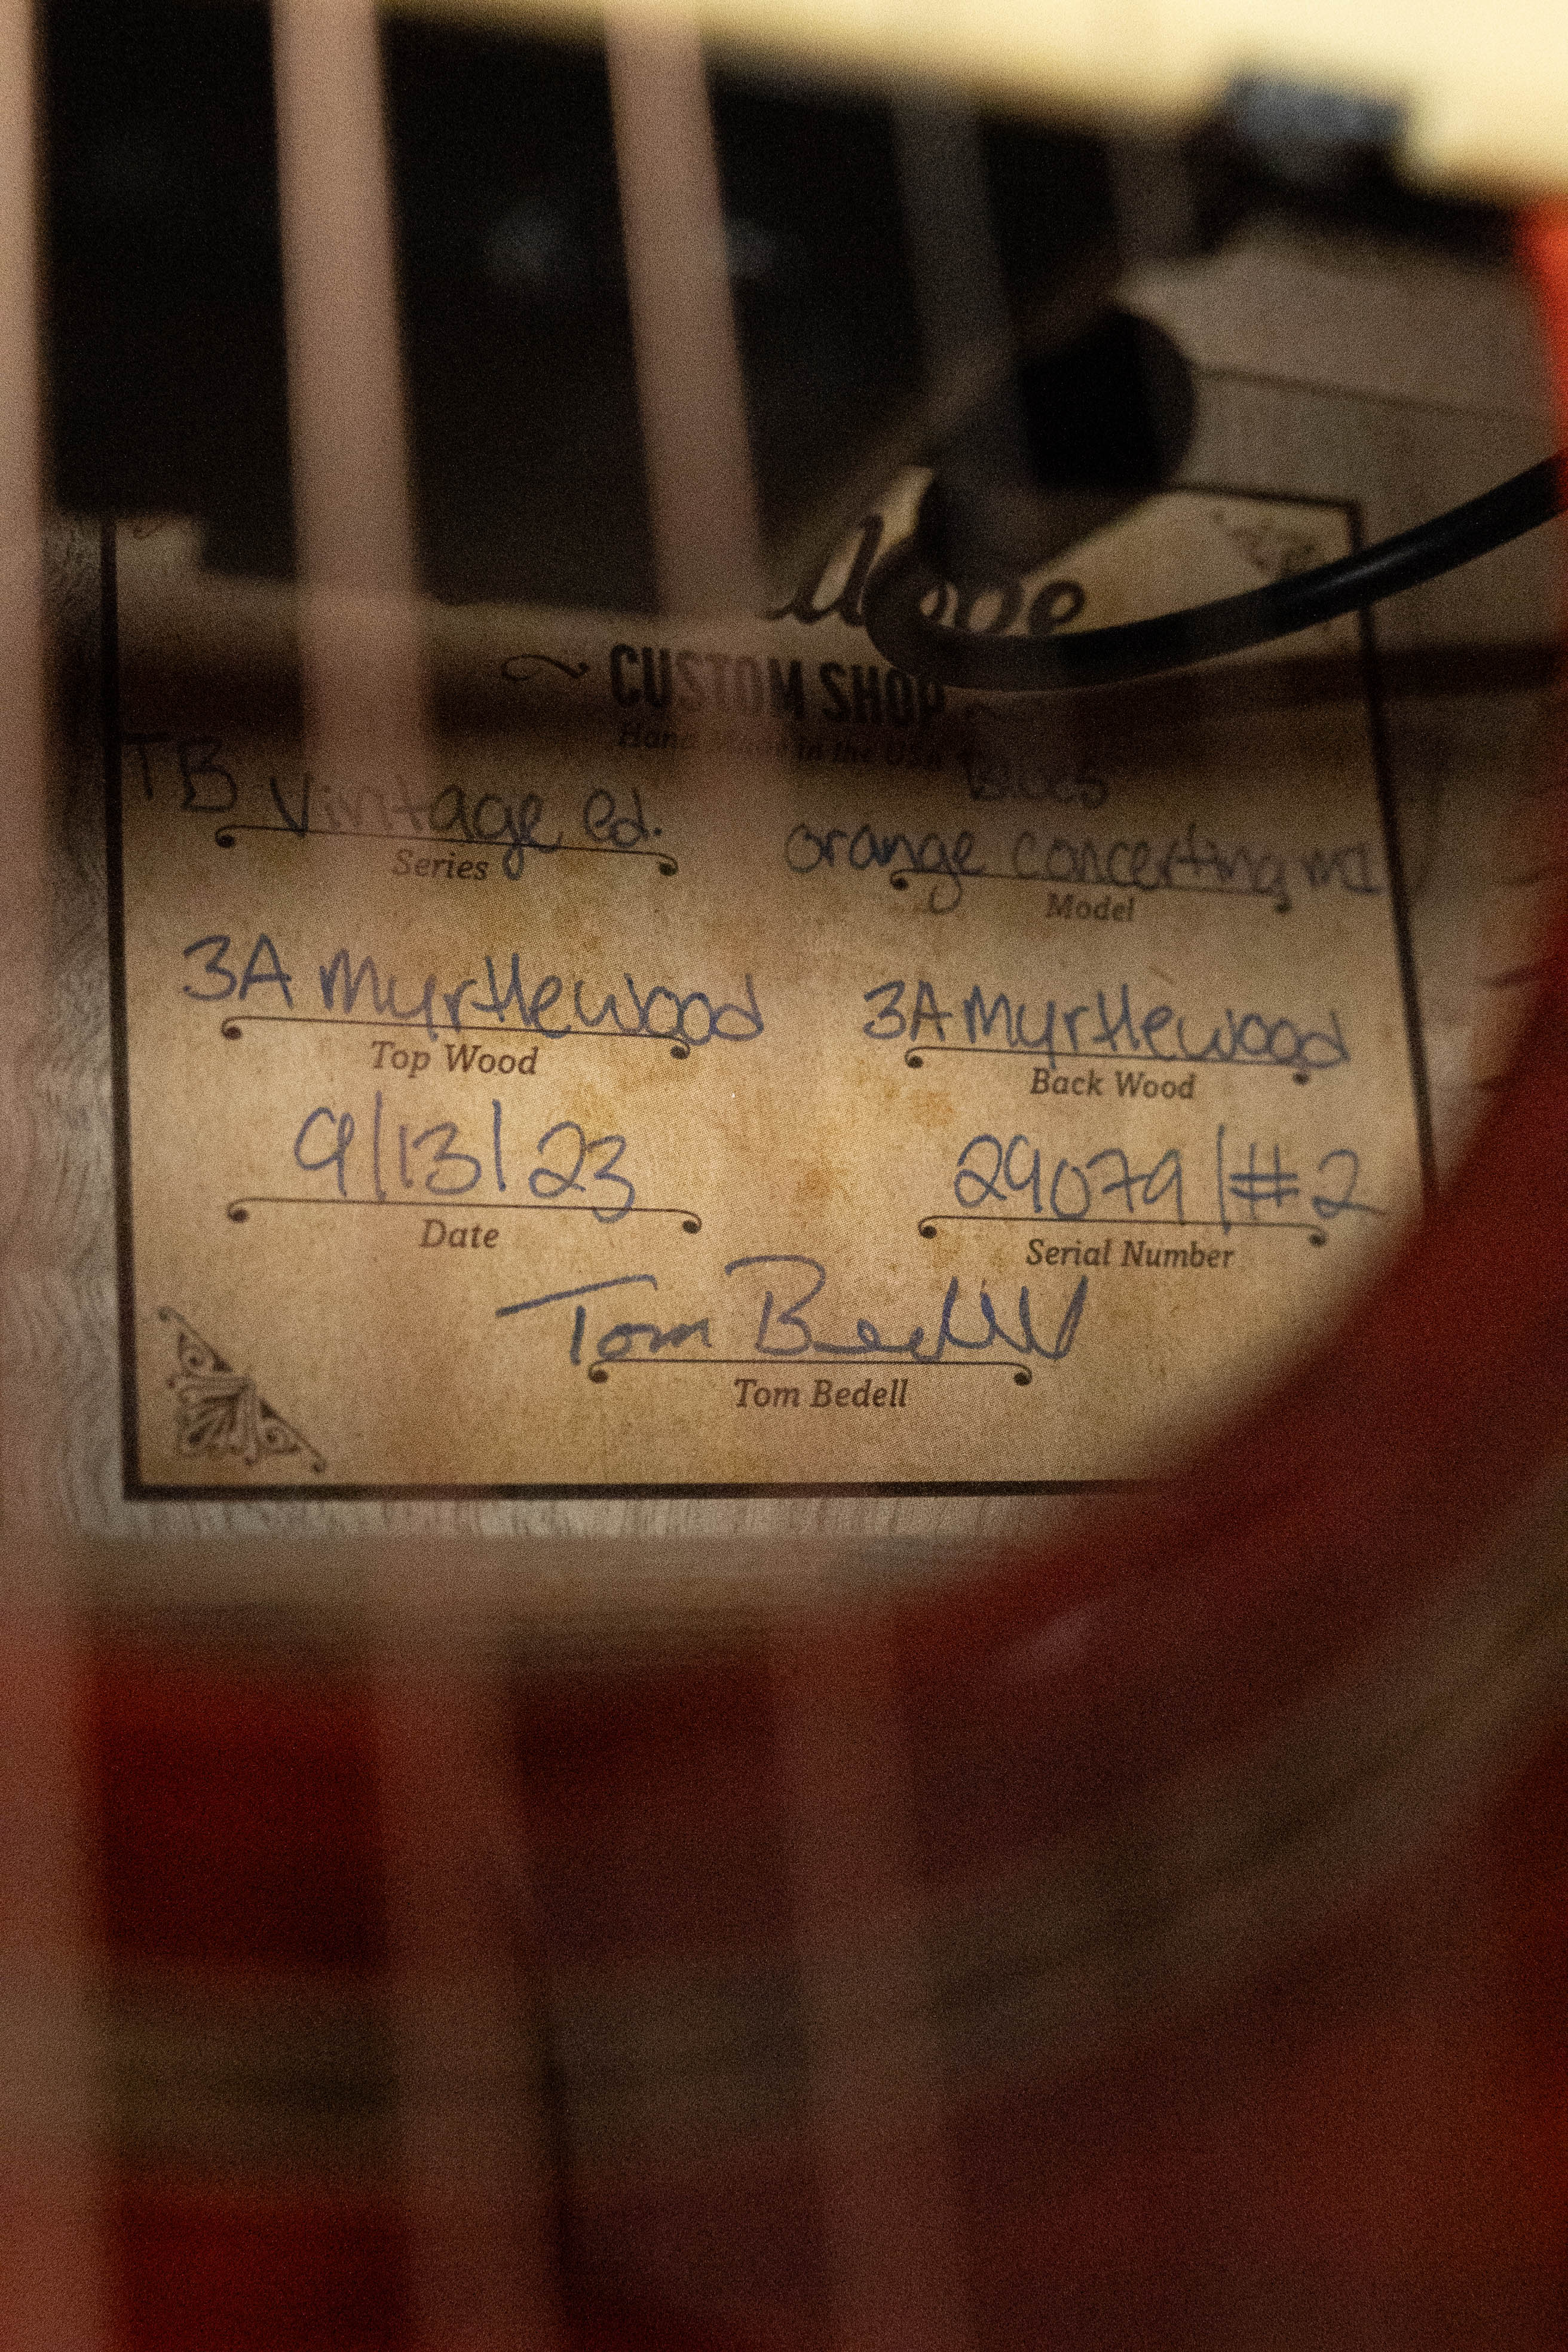 CUSTOM SHOP
Hand Made in the USA
TB Vintage ed.
Series
Blues
orange concertina MI
Model
3A Myrtlewood
Top Wood
3A Myrtlewood
Back Wood
9/13/23
Date
29079/#2
Serial Number
Tom Bedell
Tom Bedell